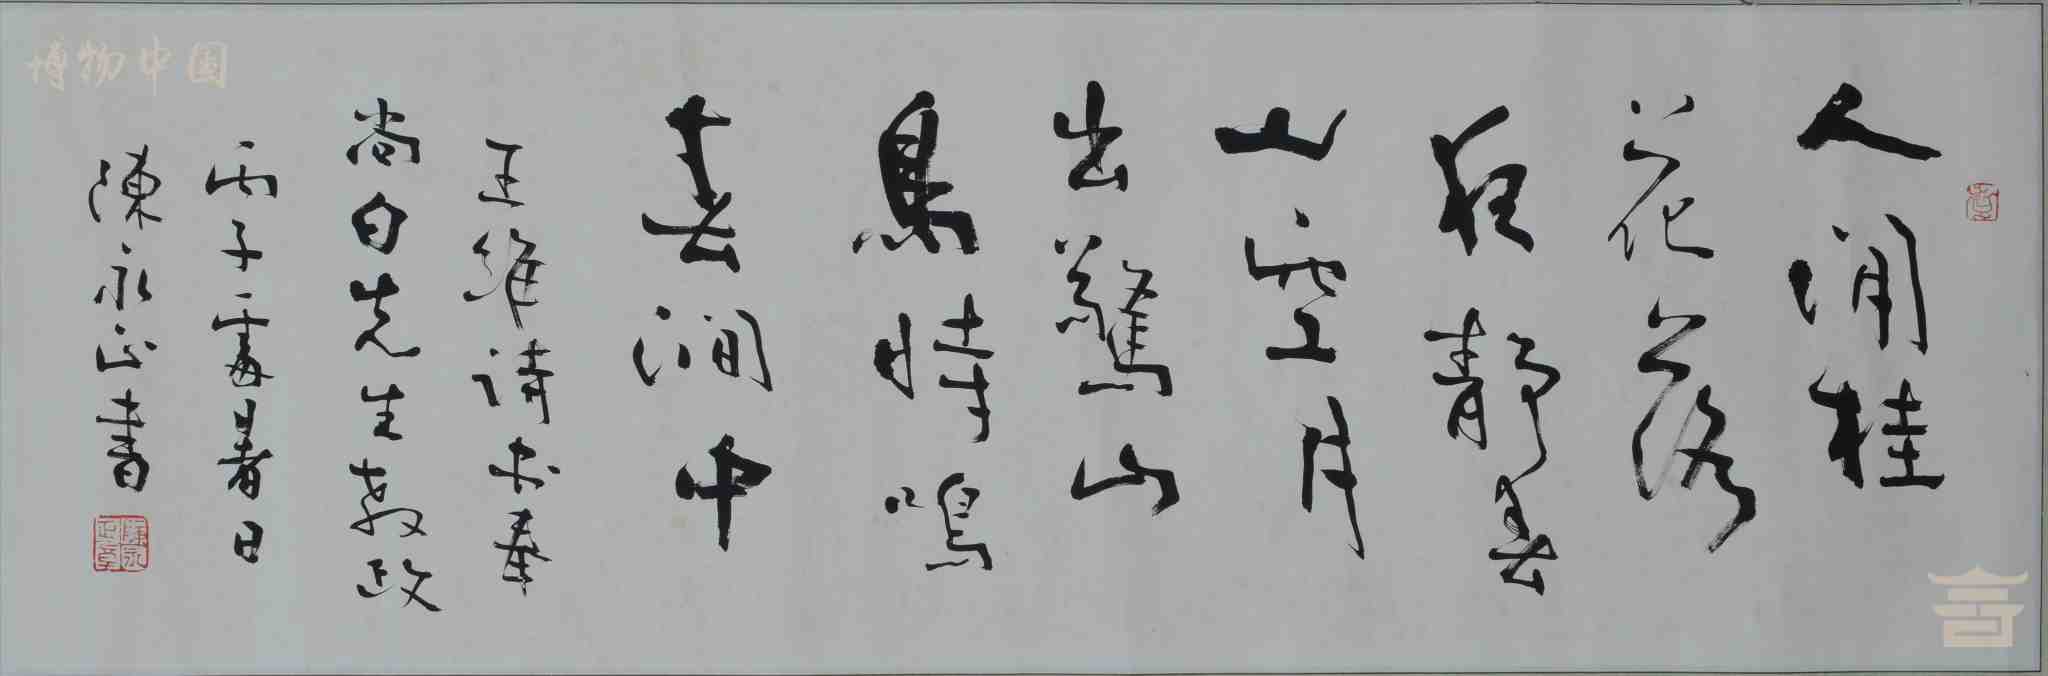 人閒桂
花落
夜靜春
山空月
出驚山
鳥時鳴
春澗中
王維詩书奉
尚白先生教政
丙子霉暑日
陳永正書
陳永正章
博物中国